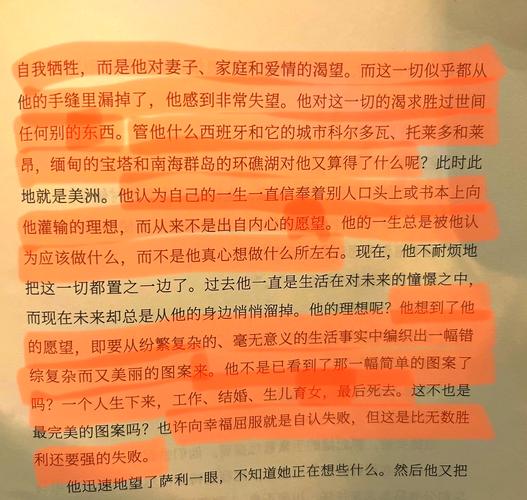 自我牺牲，而是他对妻子、家庭和爱情的渴望。而这一切似乎都从
他的手缝里漏掉了，他感到非常失望。他对这一切的渴求胜过世间
任何别的东西。管他什么西班牙和它的城市科尔多瓦、托莱多和莱
昂，缅甸的宝塔和南海群岛的环礁湖对他又算得了什么呢？此时此
地就是美洲。他认为自己的一生一直信奉着别人口头上或书本上向
他灌输的理想，而从来不是出自内心的愿望。他的一生总是被他认
为应该做什么，而不是他真心想做什么所左右。现在，他不耐烦地
把这一切都置之一边了。过去他一直是生活在对未来的憧憬之中，
而现在未来却总是从他的身边悄悄溜掉。他的理想呢？他想到了他
的愿望，即要从纷繁复杂的、毫无意义的生活事实中编织出一幅错
综复杂而又美丽的图案来。他不是已看到了那一幅简单的图案了
吗？一个人生下来，工作、结婚、生儿育女，最后死去。这不也是
最完美的图案吗？也许向幸福屈服就是自认失败，但这是比无数胜
利还要强的失败。
他迅速地望了萨利一眼，不知道她正在想些什么。然后他又把